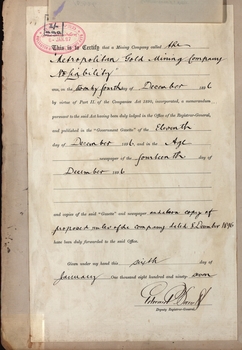 This is to Certify that a Mining Company called the
Metropolitan Gold Mining Company
No Liability
was, on the twenty fourth day of December 1896
by virtue of Part II. of the Companies Act 1890, incorporated, a memorandum
pursuant to the said Act having been duly lodged in the Office of the Registrar-General,
and published in the "Government Gazette" of the Eleventh
day of December 1896, and in the Age
newspaper of the fourteenth day of
December 1896
and copies of the said "Gazette" and newspaper and a true copy of
proposed rules of the company dated 8 December 1896
have been duly forwarded to the said Office.
Given under my hand this sixth day of
January one thousand eight hundred and ninety seven
Deputy Registrar-General.